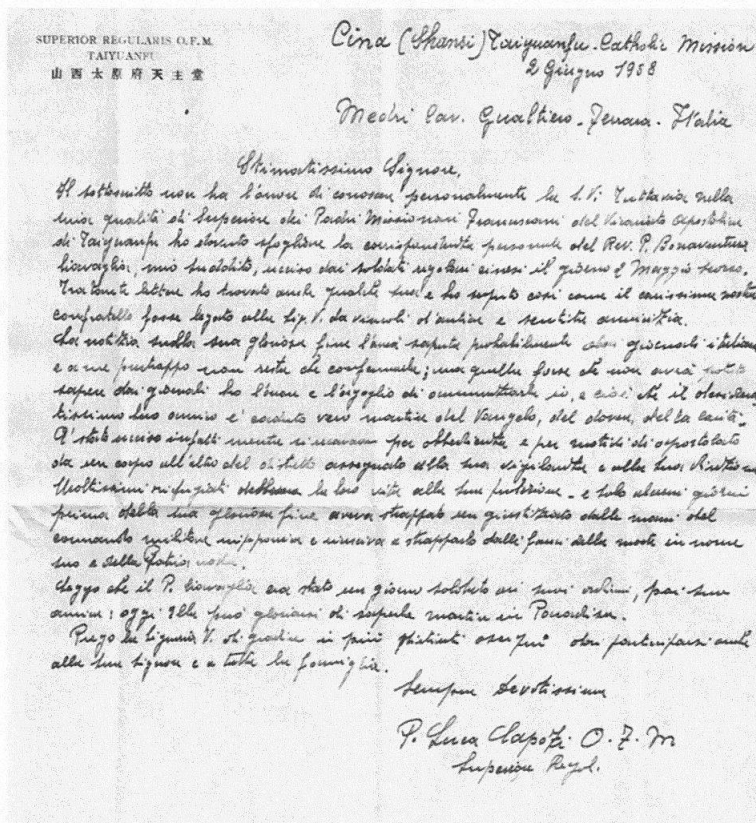 SUPERIOR REGULARIS O.F.M.
TAIYUANFU
山西太原府天主堂
Cina (Shansi) Taiyuanfu - Catholic Mission
2 Giugno 1938
Medri Cav. Gualtiero - Ferrara - Italia
Stimatissimo Signore,
Il sottoscritto non ha l'onore di conoscere personalmente la S.V. Tuttavia nella
mia qualità di Superiore dei Padri Missionari Francescani del Vicariato Apostolico
di Taiyuanfu ho dovuto sfogliare la corrispondenza personale del Rev. P. Bonaventura
Cavaglia, mio suddito, ucciso dai soldati regolari cinesi il giorno 2 Maggio scorso.
Tra tante lettere ho trovato anche qualche sua e ho saputo così come il carissimo nostro
confratello fosse legato alla Sig. V. da vincoli d'antica e sentita amicizia.
La notizia sulla sua gloriosa fine l'avrà saputa probabilmente dai giornali italiani
e a me purtroppo non resta che confermarla; ma quello forse che non avrà potuto
sapere dai giornali ho l'onore e l'orgoglio di io, e cioè che il
suo amico è caduto vero martire del Vangelo, del dovere, della carità.
E' stato ucciso infatti mentre si recava per obbedienza e per motivi di apostolato
da un capo all'altro del distretto assegnato alla sua vigilanza e alla sua direzione.
Moltissimi rifugiati debbono la loro vita alla sua protezione - e solo alcuni giorni
prima della sua gloriosa fine aveva strappato un giustiziato dalle mani del
comando militare nipponico e riusciva a strapparlo dalle fauci della morte in nome
suo e della Patria
Leggo che il P. Cavaglia era stato un giorno soldato ai suoi ordini, poi suo
amico: oggi Ella può gloriarsi di saperlo martire in Paradiso.
Prego la Signoria V. di gradire i più ossequi da parteciparsi anche
alla sua signora e a tutta la famiglia.
Sempre Devotissimo
P. Luca Capozi O.F.M
Superiore Regol.